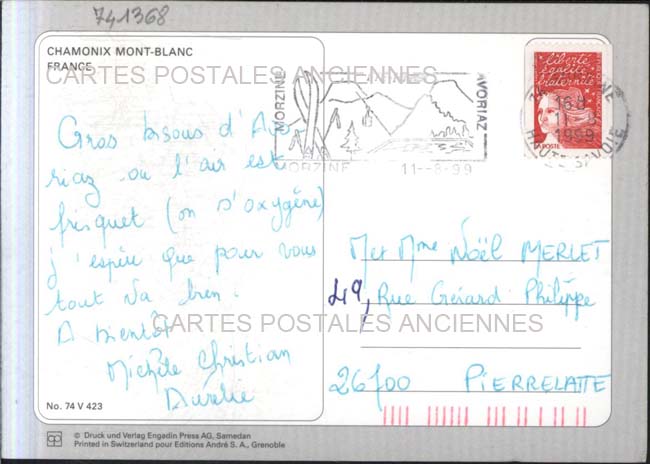 741368
CHAMONIX MONT-BLANC
FRANCE
CARTES POSTALES ANCIENNES
MORZINE
AVORIAZ
MORZINE 11--8-99
liberté
égalité
fraternité
LA POSTE
16H
11-8
1999
HAUTE-SAVOIE
Gros bisous d'Avo-
riaz où l'air est
frisquet (on s'oxygène)
j'espère que pour vous
tout va bien.
A bientôt
Michèle Christian
Aurélie
M et Mme Noël MERLET
49, Rue Gérard Philippe
26700 PIERRELATTE
CARTES POSTALES ANCIENNES
No. 74 V 423
© Druck und Verlag Engadin Press AG, Samedan
Printed in Switzerland pour Editions André S. A., Grenoble